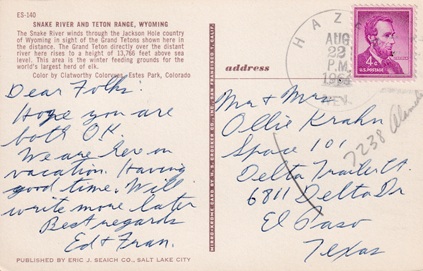 ES-140
SNAKE RIVER AND TETON RANGE, WYOMING
The Snake River winds through the Jackson Hole country
of Wyoming in sight of the Grand Tetons shown here in
the distance. The Grand Teton directly over the distant
river here rises to a height of 13,766 feet above sea
level. This area is the winter feeding grounds for the
world's largest herd of elk.
Color by Clatworthy Colorvues, Estes Park, Colorado
Dear Folks:
Hope you are
both O.K.
We are here on
vacation. Having
good time. Will
write more later
Best regards
Ed & Fran.
PUBLISHED BY ERIC J. SEAICH CO., SALT LAKE CITY
address
HAZ
AUG
22
P.M.
NEV.
4¢
U.S. POSTAGE
Mr & Mrs
Ollie Krahn
Space 101
Delta Trailer Ct.
6811 Delta Dr
El Paso
Texas
7238 Alameda